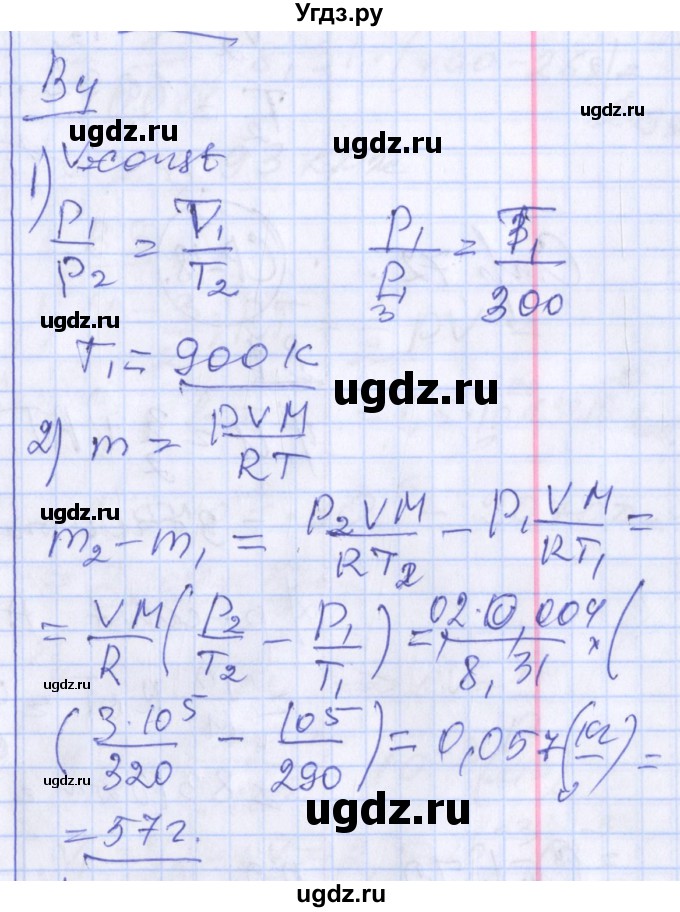 Угдз.ру
В4
ugdz.ru
ugdz.ru
1) V=const
P₁/P₂ = T₁/T₂    P₁/(P₁/3) = T₁/300
ugdz.ru
T₁ = 900 К
ugdz.ru
2) m = PVM/RT
ugdz.ru
m₂ - m₁ = P₂VM/RT₂ - P₁ VM/RT₁ =
= VM/R (P₂/T₂ - P₁/T₁) = 02·0,004/8,31 × (
ugdz.ru
(3·10⁵/320 - 105/290) = 0,057 (кг) =
ugdz.ru
ugdz.ru
= 57г.
ugdz.ru